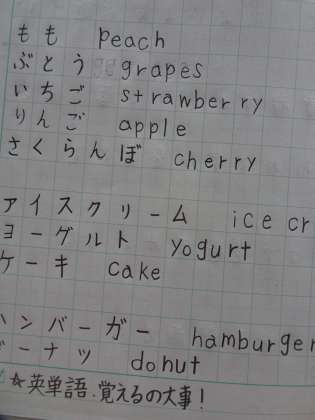 もも peach
ぶどう grapes
いちご strawberry
りんご apple
さくらんぼ cherry
アイスクリーム ice cr
ヨーグルト yogurt
ケーキ cake
ハンバーガー hamburger
ドーナツ donut
☆英単語、覚えるの大事！